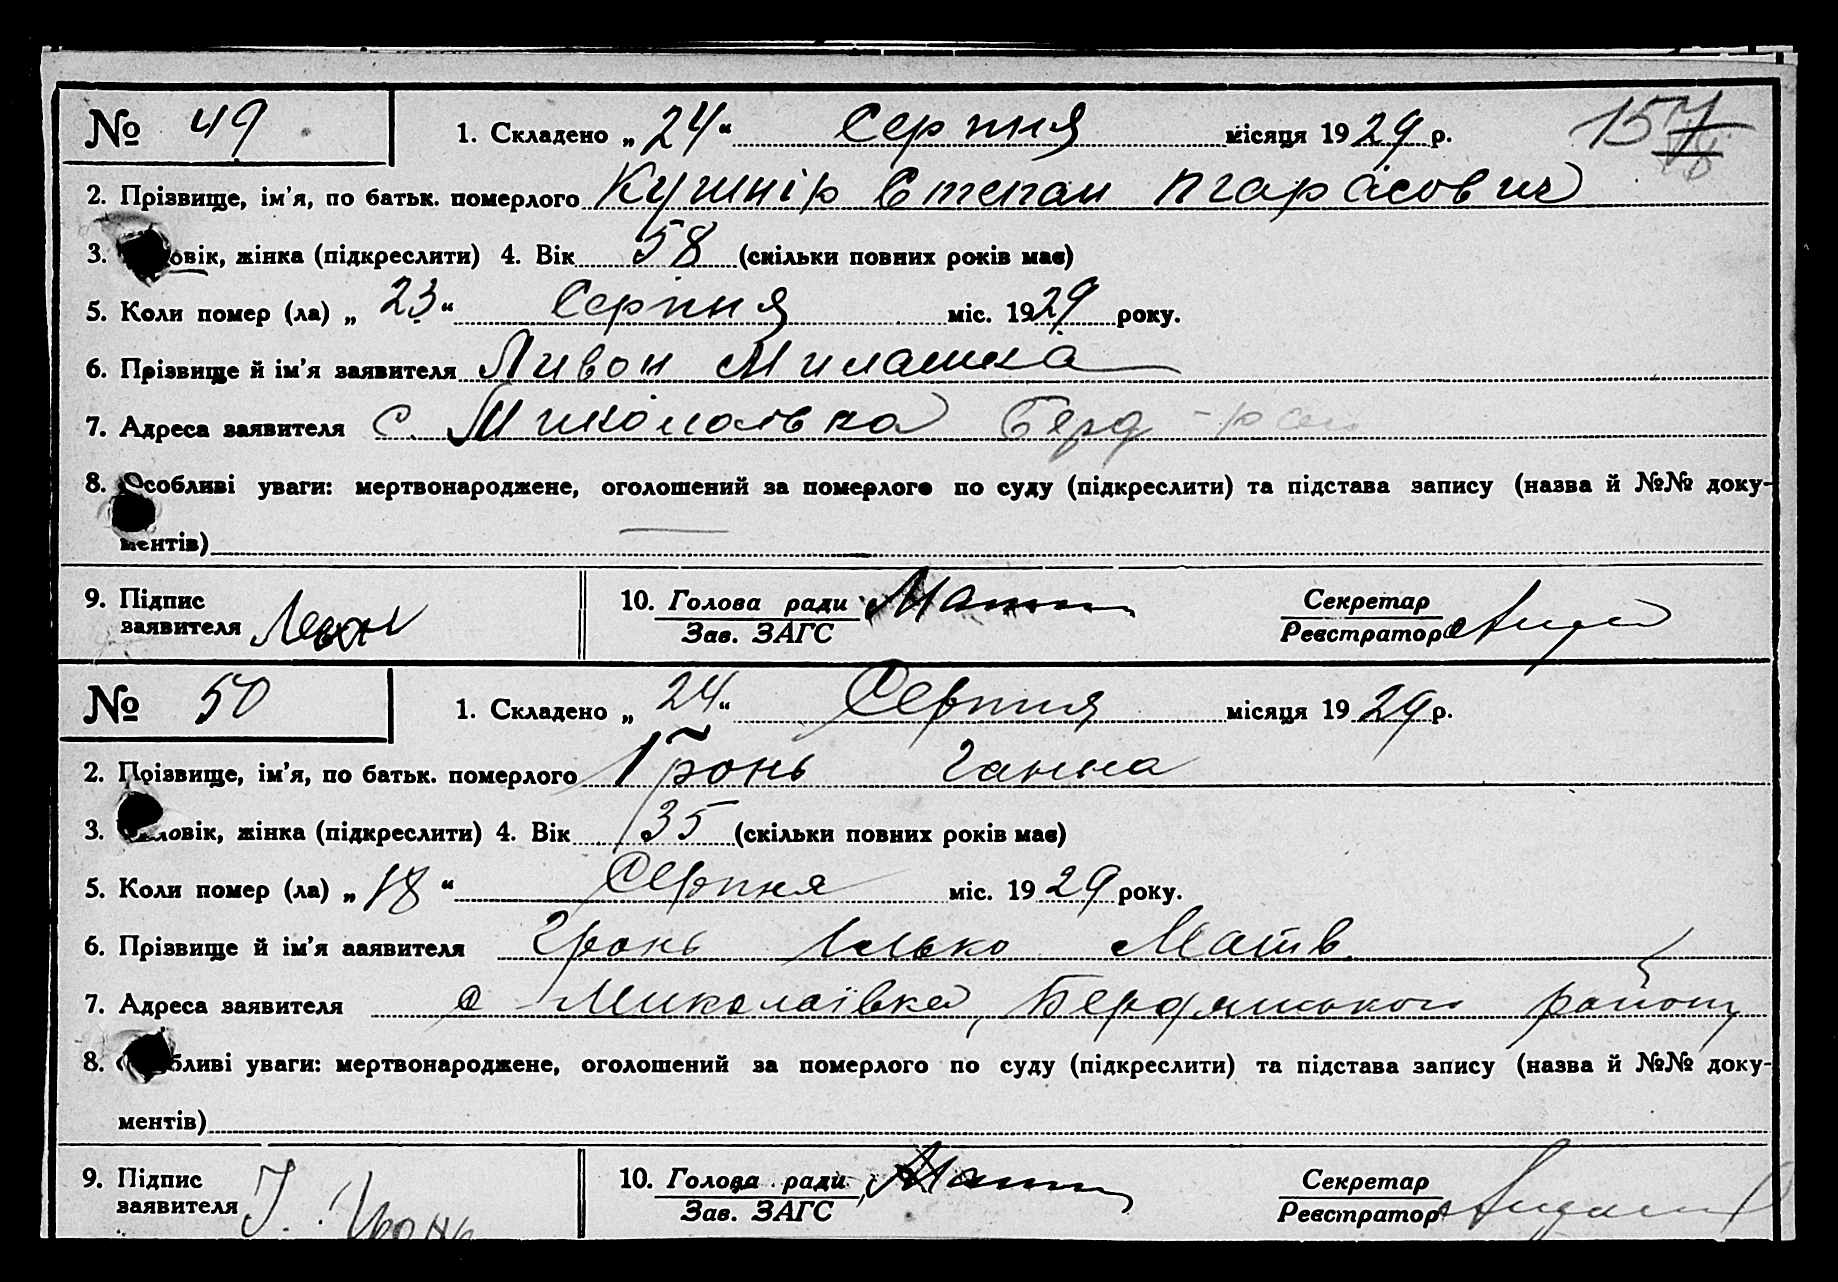 № 49 1. Складено „ 24 “ Серпня місяця 19 29 р. 157
2. Прізвище, ім'я, по батьк. померлого Кушнір Степан Тарасович
3. овік, жінка (підкреслити) 4. Вік 58 (скільки повних років має)
5. Коли помер (ла) „ 23 “ Серпня міс. 19 29 року.
6. Прізвище й ім'я заявителя Ливон Милашка
7. Адреса заявителя с. Миколаївка Берд - рай
8. Особливі уваги: мертвонароджене, оголошений за померлого по суду (підкреслити) та підстава запису (назва й №№ доку-
ментів)
9. Підпис 10. Голова ради Секретар
заявителя Зав. ЗАГС Реєстратор
№ 50 1. Складено „ 24 “ Серпня місяця 19 29 р.
2. Прізвище, ім'я, по батьк. померлого Гронь Ганна
3. ловік, жінка (підкреслити) 4. Вік 35 (скільки повних років має)
5. Коли помер (ла) „ 18 “ Серпня міс. 19 29 року.
6. Прізвище й ім'я заявителя Гронь Ілько Матв.
7. Адреса заявителя с Миколаївка, Бердянського району
8. бливі уваги: мертвонароджене, оголошений за померлого по суду (підкреслити) та підстава запису (назва й №№ доку-
ментів)
9. Підпис 10. Голова ради Секретар
заявителя І. Гронь Зав. ЗАГС Реєстратор